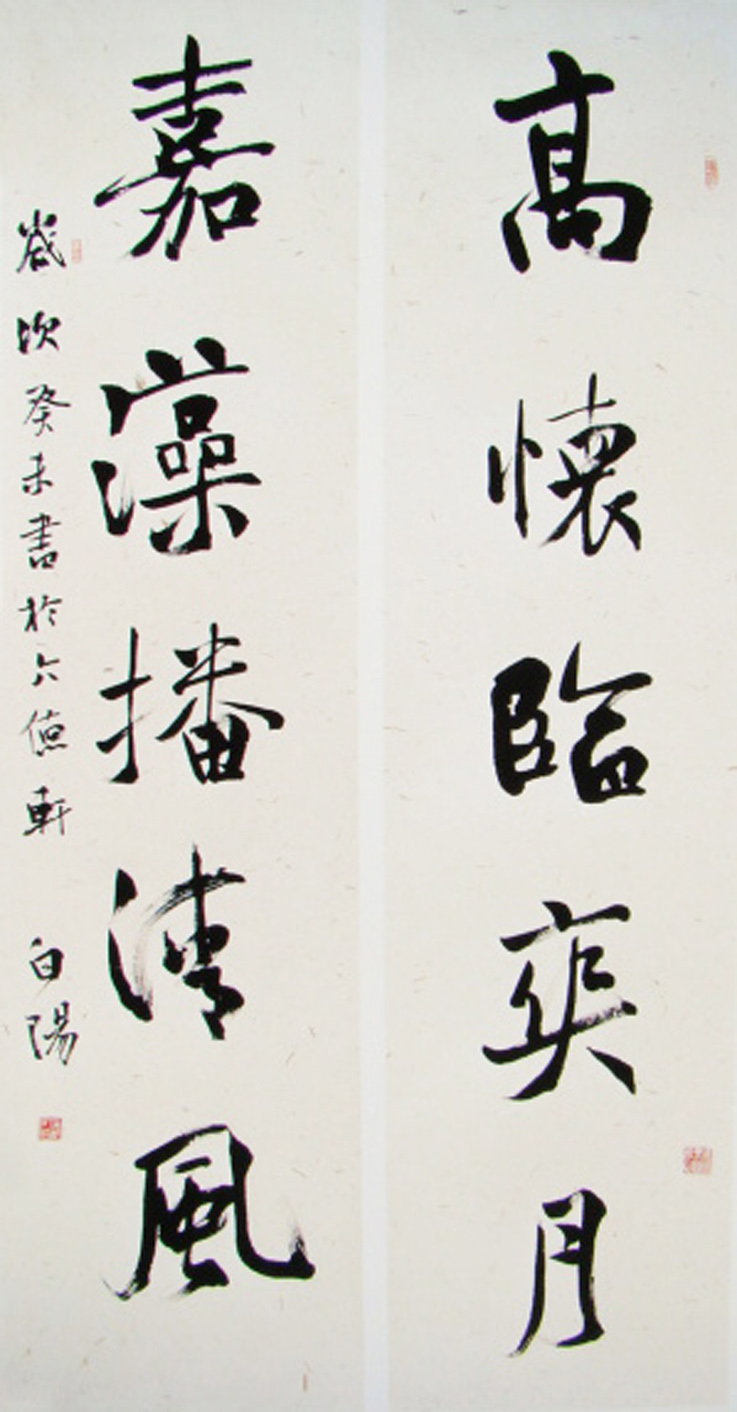 高懷臨奕月
嘉藻播清風
歲次癸未書於六億軒 白陽